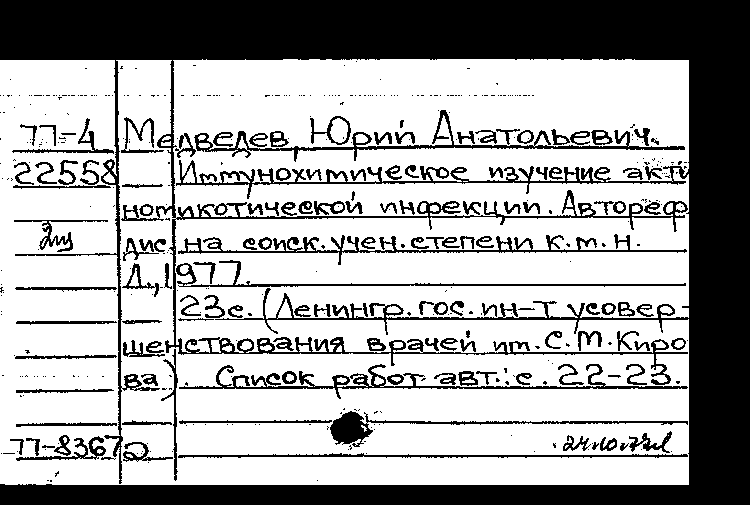 77-4 Медведев, Юрий Анатольевич.
22558 Иммунохимическое изучение акти
номикотической инфекции. Автореф
дис. на соиск. учен. степени к.м.н.
Л., 1977.
23с. (Ленингр. гос. ин-т усовер-
шенствования врачей им. С.М. Киро
ва). Список работ авт.: с. 22-23.
77-8367